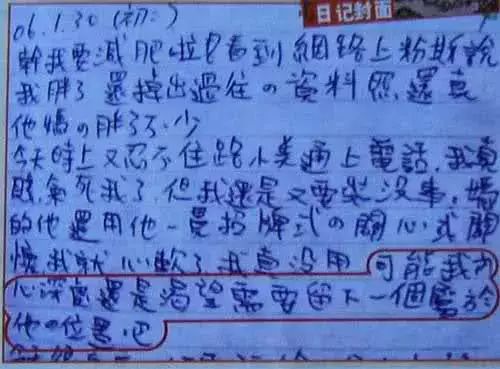 日记封面
06.1.30 (初二)
幹我要減肥啦只看到網路上粉斯說
我胖了 還撐出過往の資料照,還真
他媽の胖了不少
今天晚上又忍不住路小美通上電話,我真
氣死我了 但我還是又要裝沒事,媽
的他還用他一貫招牌式の關心或關
懷我就心軟了我真沒用 可能我內
心深處還是渴望需要留下一個屬於
他の位置吧